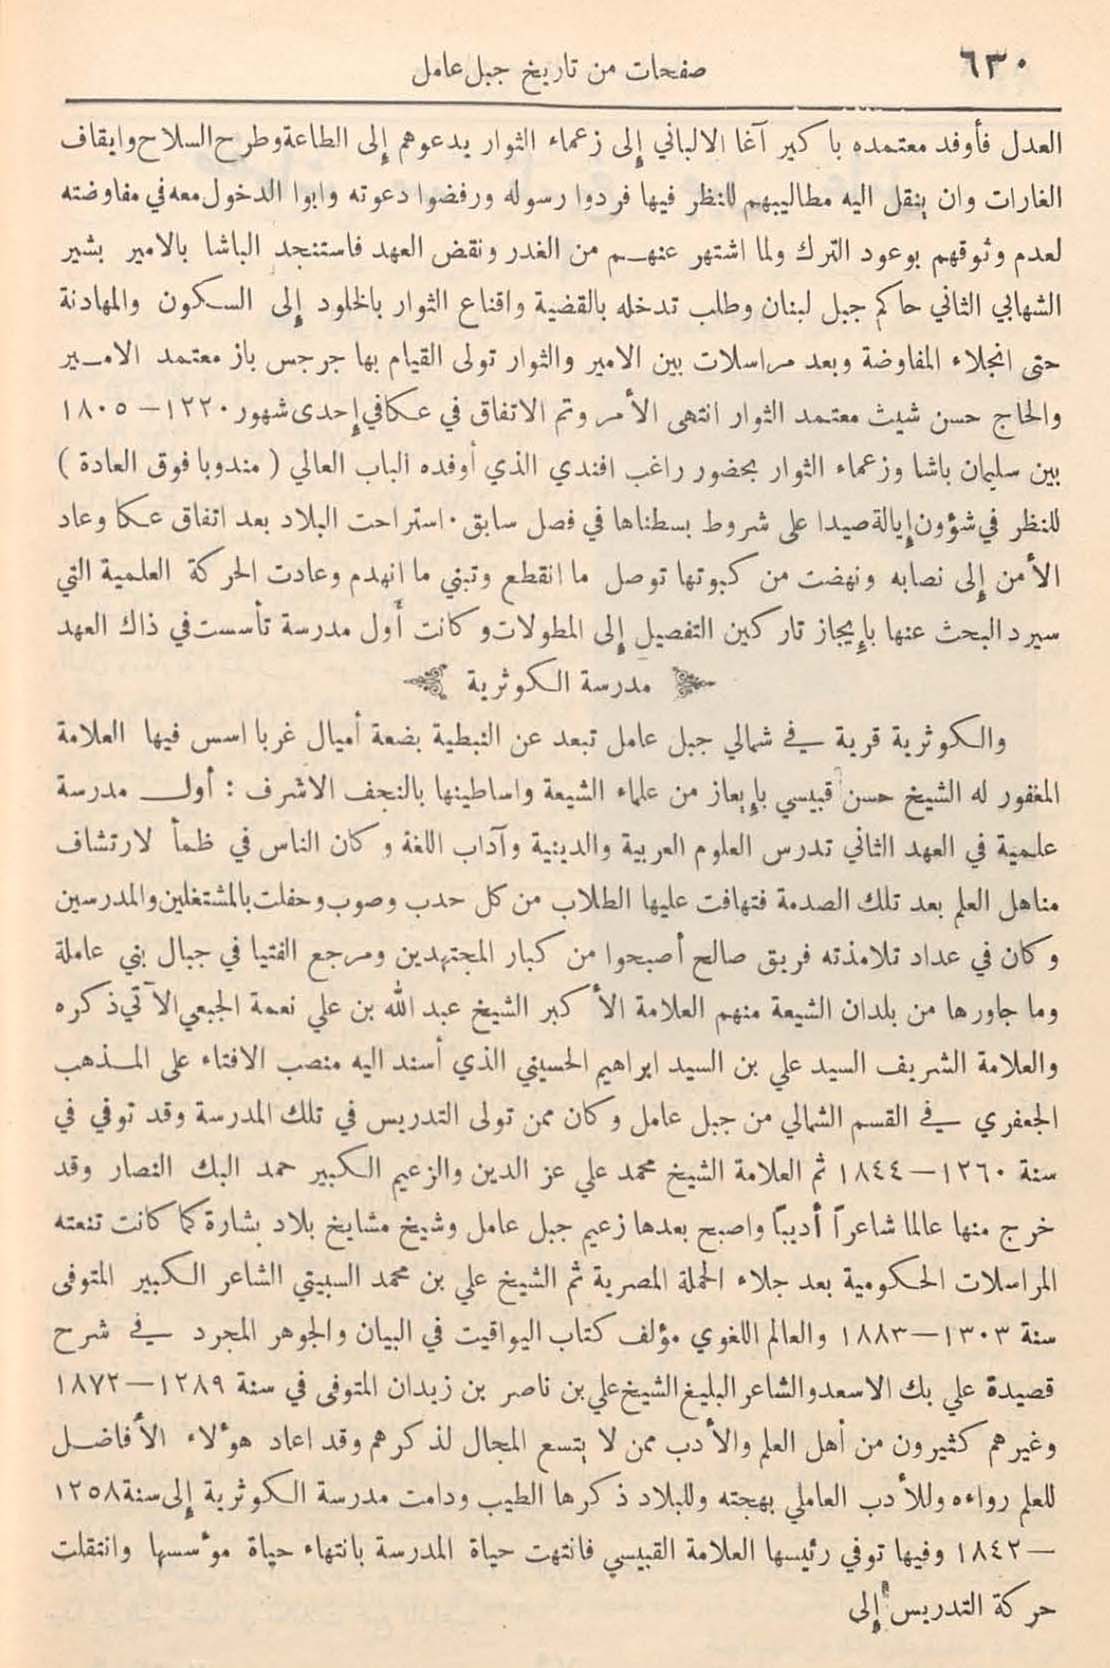 ٦٣٠ صفحات من تاريخ جبل عامل
العدل فأوفد معتمده باكير آغا الالباني إلى زعماء الثوار يدعوهم إلى الطاعة وطرح السلاح وايقاف
الغارات وان ينقل اليه مطاليبهم للنظر فيها فردوا رسوله ورفضوا دعوته وابوا الدخول معه في مفاوضته
لعدم وثوقهم بوعود الترك ولما اشتهر عنهم من الغدر ونقض العهد فاستنجد الباشا بالامير بشير
الشهابي الثاني حاكم جبل لبنان وطلب تدخله بالقضية واقناع الثوار بالخلود إلى السكون والمهادنة
حتى انجلاء المفاوضة وبعد مراسلات بين الامير والثوار تولى القيام بها جرجس باز معتمد الامير
والحاج حسن شيث معتمد الثوار انتهى الأمر وتم الاتفاق في عكا في إحدى شهور ١٢٢٠ – ١٨٠٥
بين سليمان باشا وزعماء الثوار بحضور راغب افندي الذي أوفده الباب العالي ( مندوبا فوق العادة )
للنظر في شؤون إيالة صيدا على شروط بسطناها في فصل سابق ٠ استراحت البلاد بعد اتفاق عكا وعاد
الأمن إلى نصابه ونهضت من كبوتها توصل ما انقطع وتبني ما انهدم وعادت الحركة العلمية التي
سيرد البحث عنها بإيجاز تاركين التفصيل إلى المطولات وكانت أول مدرسة تأسست في ذاك العهد
مدرسة الكوثرية
والكوثرية قرية في شمالي جبل عامل تبعد عن النبطية بضعة أميال غربا اسس فيها العلامة
المغفور له الشيخ حسن قبيسي بإيعاز من علماء الشيعة واساطينها بالنجف الاشرف : أول مدرسة
علمية في العهد الثاني تدرس العلوم العربية والدينية وآداب اللغة وكان الناس في ظمأ لارتشاف
مناهل العلم بعد تلك الصدمة فتهافت عليها الطلاب من كل حدب وصوب وحفلت بالمشتغلين والمدرسين
وكان في عداد تلامذته فريق صالح أصبحوا من كبار المجتهدين ومرجع الفتيا في جبال بني عاملة
وما جاورها من بلدان الشيعة منهم العلامة الأكبر الشيخ عبد الله بن علي نعمة الجبعي الآتي ذكره
والعلامة الشريف السيد علي بن السيد ابراهيم الحسيني الذي أسند اليه منصب الافتاء على المذهب
الجعفري في القسم الشمالي من جبل عامل وكان ممن تولى التدريس في تلك المدرسة وقد توفي في
سنة ١٢٦٠ – ١٨٤٤ ثم العلامة الشيخ محمد علي عز الدين والزعيم الكبير حمد البك النصار وقد
خرج منها عالما شاعراً أديباً واصبح بعدها زعيم جبل عامل وشيخ مشايخ بلاد بشارة كما كانت تنعته
المراسلات الحكومية بعد جلاء الحملة المصرية ثم الشيخ علي بن محمد السبيتي الشاعر الكبير المتوفى
سنة ١٣٠٣ – ١٨٨٣ والعالم اللغوي مؤلف كتاب اليواقيت في البيان والجوهر المجرد في شرح
قصيدة علي بك الاسعد والشاعر البليغ الشيخ علي بن ناصر بن زيدان المتوفى في سنة ١٢٨٩ – ١٨٧٢
وغيرهم كثيرون من أهل العلم والأدب ممن لا يتسع المجال لذكرهم وقد اعاد هؤلاء الأفاضل
للعلم رواءه وللأدب العاملي بهجته وللبلاد ذكرها الطيب ودامت مدرسة الكوثرية إلى سنة ١٢٥٨
– ١٨٤٢ وفيها توفي رئيسها العلامة القبيسي فانتهت حياة المدرسة بانتهاء حياة مؤسسها وانتقلت
حركة التدريس إلى